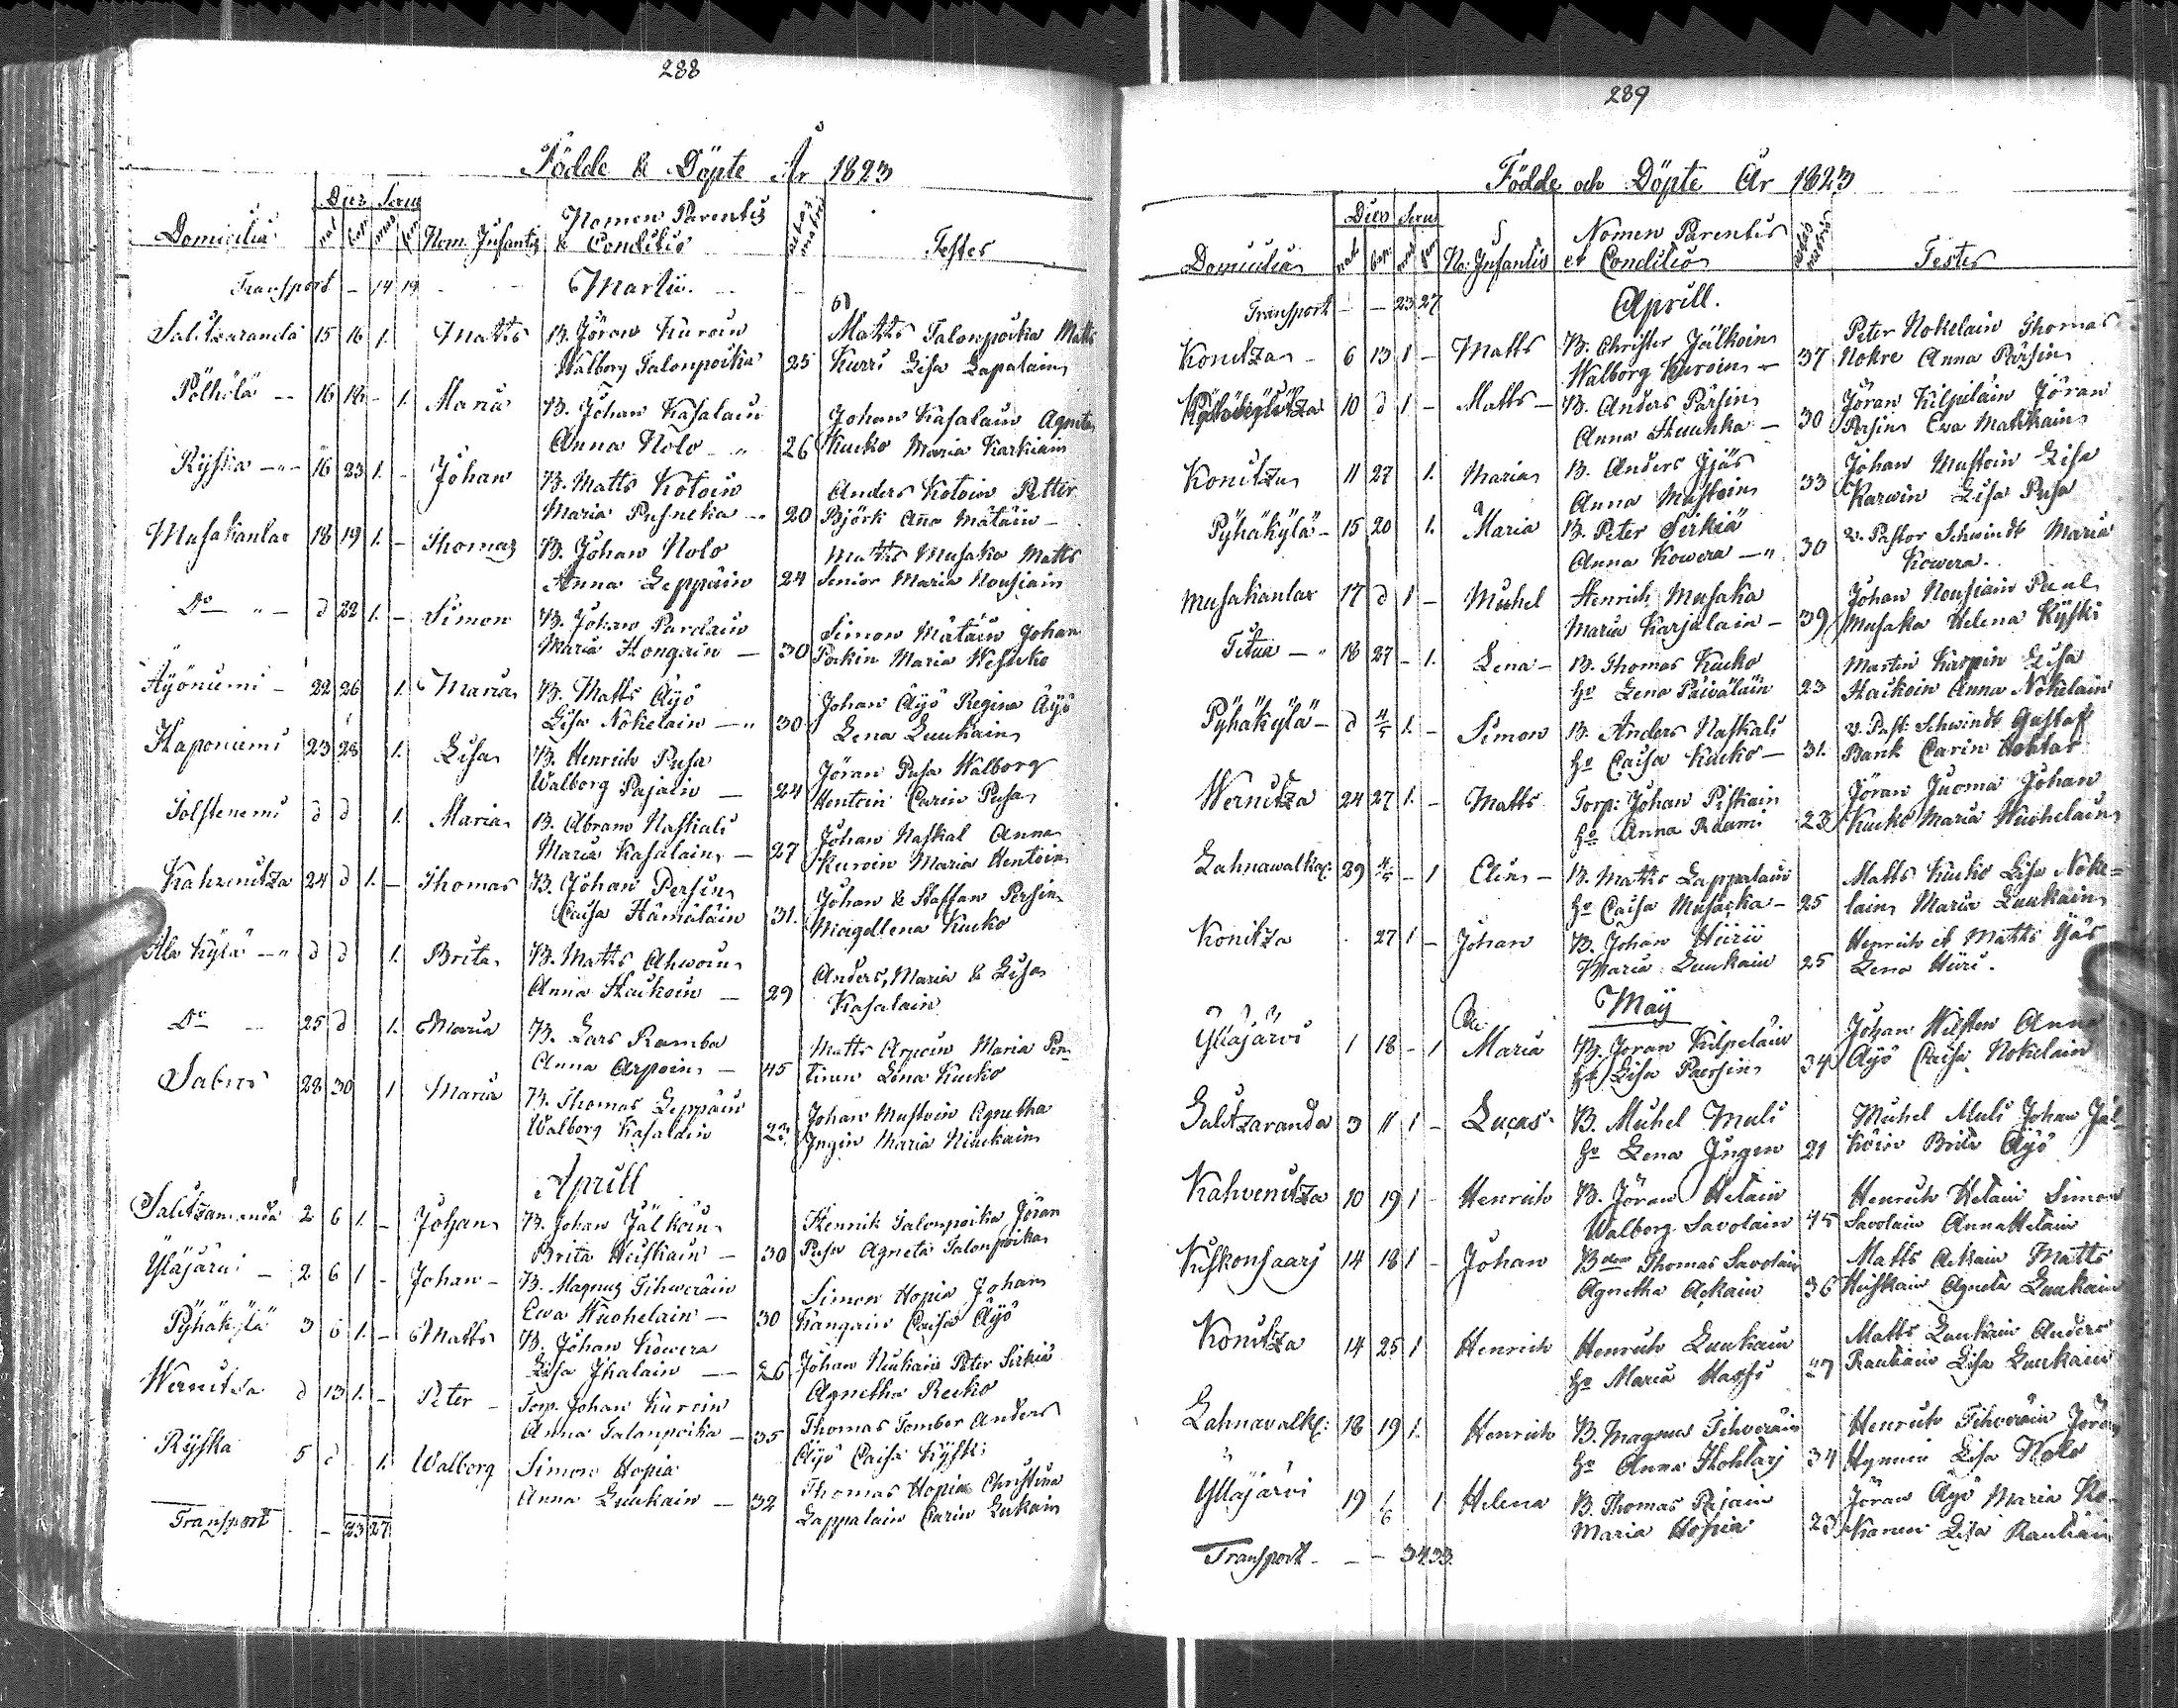 288
Födde & Döpte År 1823
Dies Sexus
Domicilia nat bap mas fem Nom. Infantis Nomen Parentis & Conditio ætas matris Testes
Transport - 14 19 Martii.
Salitsaranda 15 16 1. Matts B. Jöran Kuroin Matts Talonpoika Matts
Walborg Talonpoika 25 Kurri Lisa Lapalain
Pölhölä 16 - 1. Maria B. Johan Kasalain Johan Kasalain Agneta
Anna Nolo 26 Kucko Maria Karkiain
Ryska 16 23 1. - Johan B. Matts Kotoin Anders Kotoin Petter
Maria Pusneka 20 Björk Anna Mätäin
Musakanlax 18 19 1. - Thomas B. Johan Nolo Matts Musaka Matts
Anna Leppäin 24 Senior Maria Nousiain
Do d 22 1. - Simon B. Johan Pardain Simon Mätäin Johan
Maria Hongain - 30 Porkin Maria
Äyöniemi - 22 26 1. Maria B. Matts Äyö Johan Äyö Regina Äyö
Lisa Nokelain 30 Lena Luukain
Haponiemi 23 28 1. Lisa B. Henrich Pusa Jöran Pusa Walborg
Walborg Pajain - 24 Hentoin Carin Pusa
d d 1. Maria B. Abram Naskali Johan Naskal Anna
Maria Kasalain - 27 Kuroin Maria Hentoin
24 d 1. - Thomas B. Johan Persin Johan & Staffan Persin
Caisa Hämäläin 31. Magdlena Kucko
Alla Kylä d d 1. Brita B. Matts Ahwoin Anders, Maria & Lisa
Anna Haikoin - 29 Kasalain
Do 25 d 1. Maria B. Lars Ramba Matts Arpoin Maria Pen-
Anna Arpoin - 45 tinen Lena Kucko
28 30 1 Maria B. Thomas Leppäin Johan Mustoin Agnetha
Walborg Kasalain 23. Ingin Maria Niukain
Aprill
Salitzaranda 2 6 1. - Johan B. Johan Jälkoin Henrik Talonpoika Jöran
Brita Heiskain - 30 Pusa Agneta Talonpoika
Yläjärvi - 2 6 1 - Johan - B. Magnus Tihveräin Simon Hopia Johan
Ewa Huohelain - 30 Kangain Caisa Äyö
Pyhäkylä 3 6 1. - Matts B. Johan Kowera Johan Niukain Peter Sirkiä
Lisa Ihalain - 26 Agnetha Recko
Wernitza d 13 1. - Peter - Torp. Johan Kuroin Thomas Tomber Anders
Anna Talonpoika - 35 Äyö Caisa Kyski
Ryska 5 d 1. Walborg Simon Hopia Thomas Hopia Christina
Anna Luukain - 32 Lappalain Carin Lukain
Transport - 23 27
289
Födde och Döpte År 1823
Dies Sexus
Domicilia nat bap mas fem No: Infantis Nomen Parentis et Conditio ætas matris Testes
Transport - - 23 27 Aprill.
Konitza - 6 13 1 - Matts B. Christer Jälkoin Peter Nokelain Thomas
Walborg Kuroin - 37 Nokre Anna Pärsin
10 d 1 - Matts - B. Anders Pärsin Jöran Kilpiläin Jöran
Anna Huuhka - 30 Persin Eva Mattikain
Konitza 11 27 1. Maria B. Anders Jjäs Johan Mustoin Lisa
Anna Mustoin 33 Karwin Lisa Pusa
Pyhäkylä - 15 20 1. Maria B. Peter Sirkiä v. Pastor Schwindt Maria
Anna Kowera 30 Kowera.
Musakanlax 17 d 1 - Michel Henrich Musaka Johan Nousiain Paul
Maria Karjalain - 39 Musaka Helena Kyski
18 27 - 1. Lena - B. Thomas Kucko Martin Karpin Lisa
Ho Lena Päiväläin 23 Haikoin Anna Nokelain
Pyhäkylä - d 4/5 1. - Simon B. Anders Naskali v. Past: Schwindt Gustaf
Ho Caisa Kucko - 31. Bank Carin Hohtar
Wernitza 24 27 1. - Matts Torp: Johan Piskain Jöran Juoma Johan
Ho Anna Raami 23 Kucko Maria Huohelain
Lahnawalka: 29 4/5 - 1 Elin - B. Matts Lappalain Matts Kucko Lisa Noke=
Ho Caisa Musaka - 25 lain Maria Luukain
Konitza 27 1 - Johan B. Johan Hiirii Henrich et Matts Jjäs
Maria Luukain 25 Lena Hiiri.
May
Ylläjärvi 1 18 - 1 Maria B. Jöran Kilpeläin Johan Wilsten Anna
Ho Lisa Paersin 34 Äyö Caisa Nokelain
Salitzaranda 3 11 1 - Lucas B. Michel Muli Michel Muli Johan Jäl-
Ho Lena Ingen 21 koin Brita Äyö
Kahvenitza 10 19 1 - Henrich B. Jöran Hetain Henrich Hetain Simon
Walborg Savolain 45 Savolain Anna Hetain
Kiskonsaarj 14 18 1 - Johan Bden Thomas Savolain Matts Ackain Matts
Agnetha Ackain 36 Heiskain Agneta Luukain
Konitza 14 25 1 Henrich Henrich Luukain Matts Luukain Anders
Ho Maria Hassi 27 Rautiain Lisa Luukain
Lahnavalk: 18 19 1. Henrich B. Magnus Tihveräin Henrich Tihveräin Jöran
Ho Anna Hohtarj 34 Hyninin Lisa Nolo
Ylläjärvi 19 1/6 1 Helena B. Thomas Pajain Jöran Äyö Maria Ko-
Maria Hopia 23 Lisa Rautiain
Transport - - - 34 33.